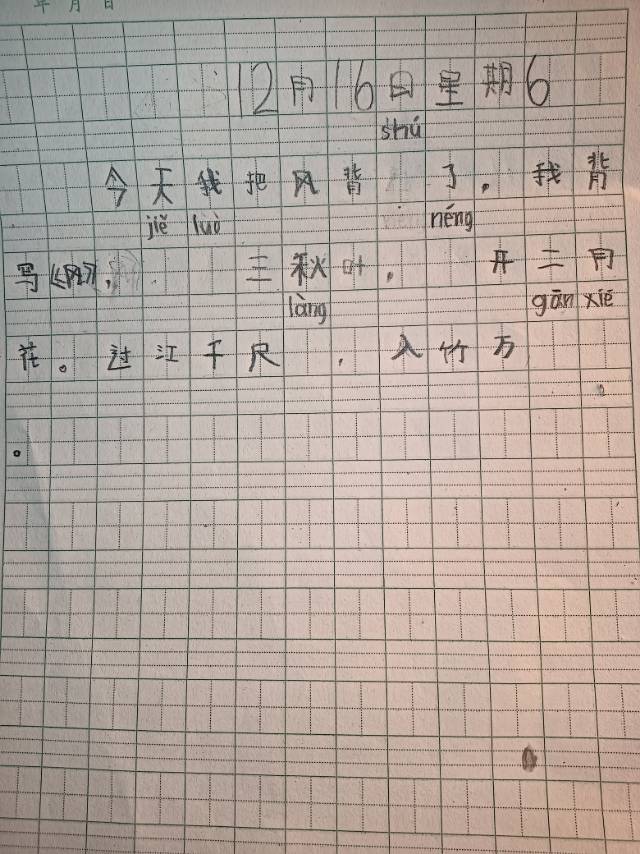 年 月 日
12月16日星期6
shú
今天我把风背 了,我背
jiě luò néng
写《风》, 三秋叶, 开二月
làng gān xié
花。过江千尺 ,入竹万
。